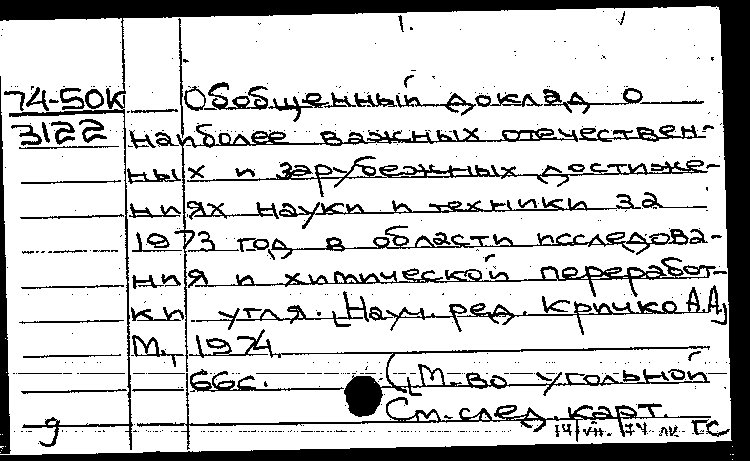 74-50К Обобщенный доклад о
3122 наиболее важных отечествен-
ных и зарубежных достиже-
ниях науки и техники за
1973 год в области исследова-
ния и химической переработ-
ки угля. [Науч. ред. Кричко А.А]
М., 1974.
66с. ([М-во угольной
См. след. карт.
9 14/VII. 74 лк ГС